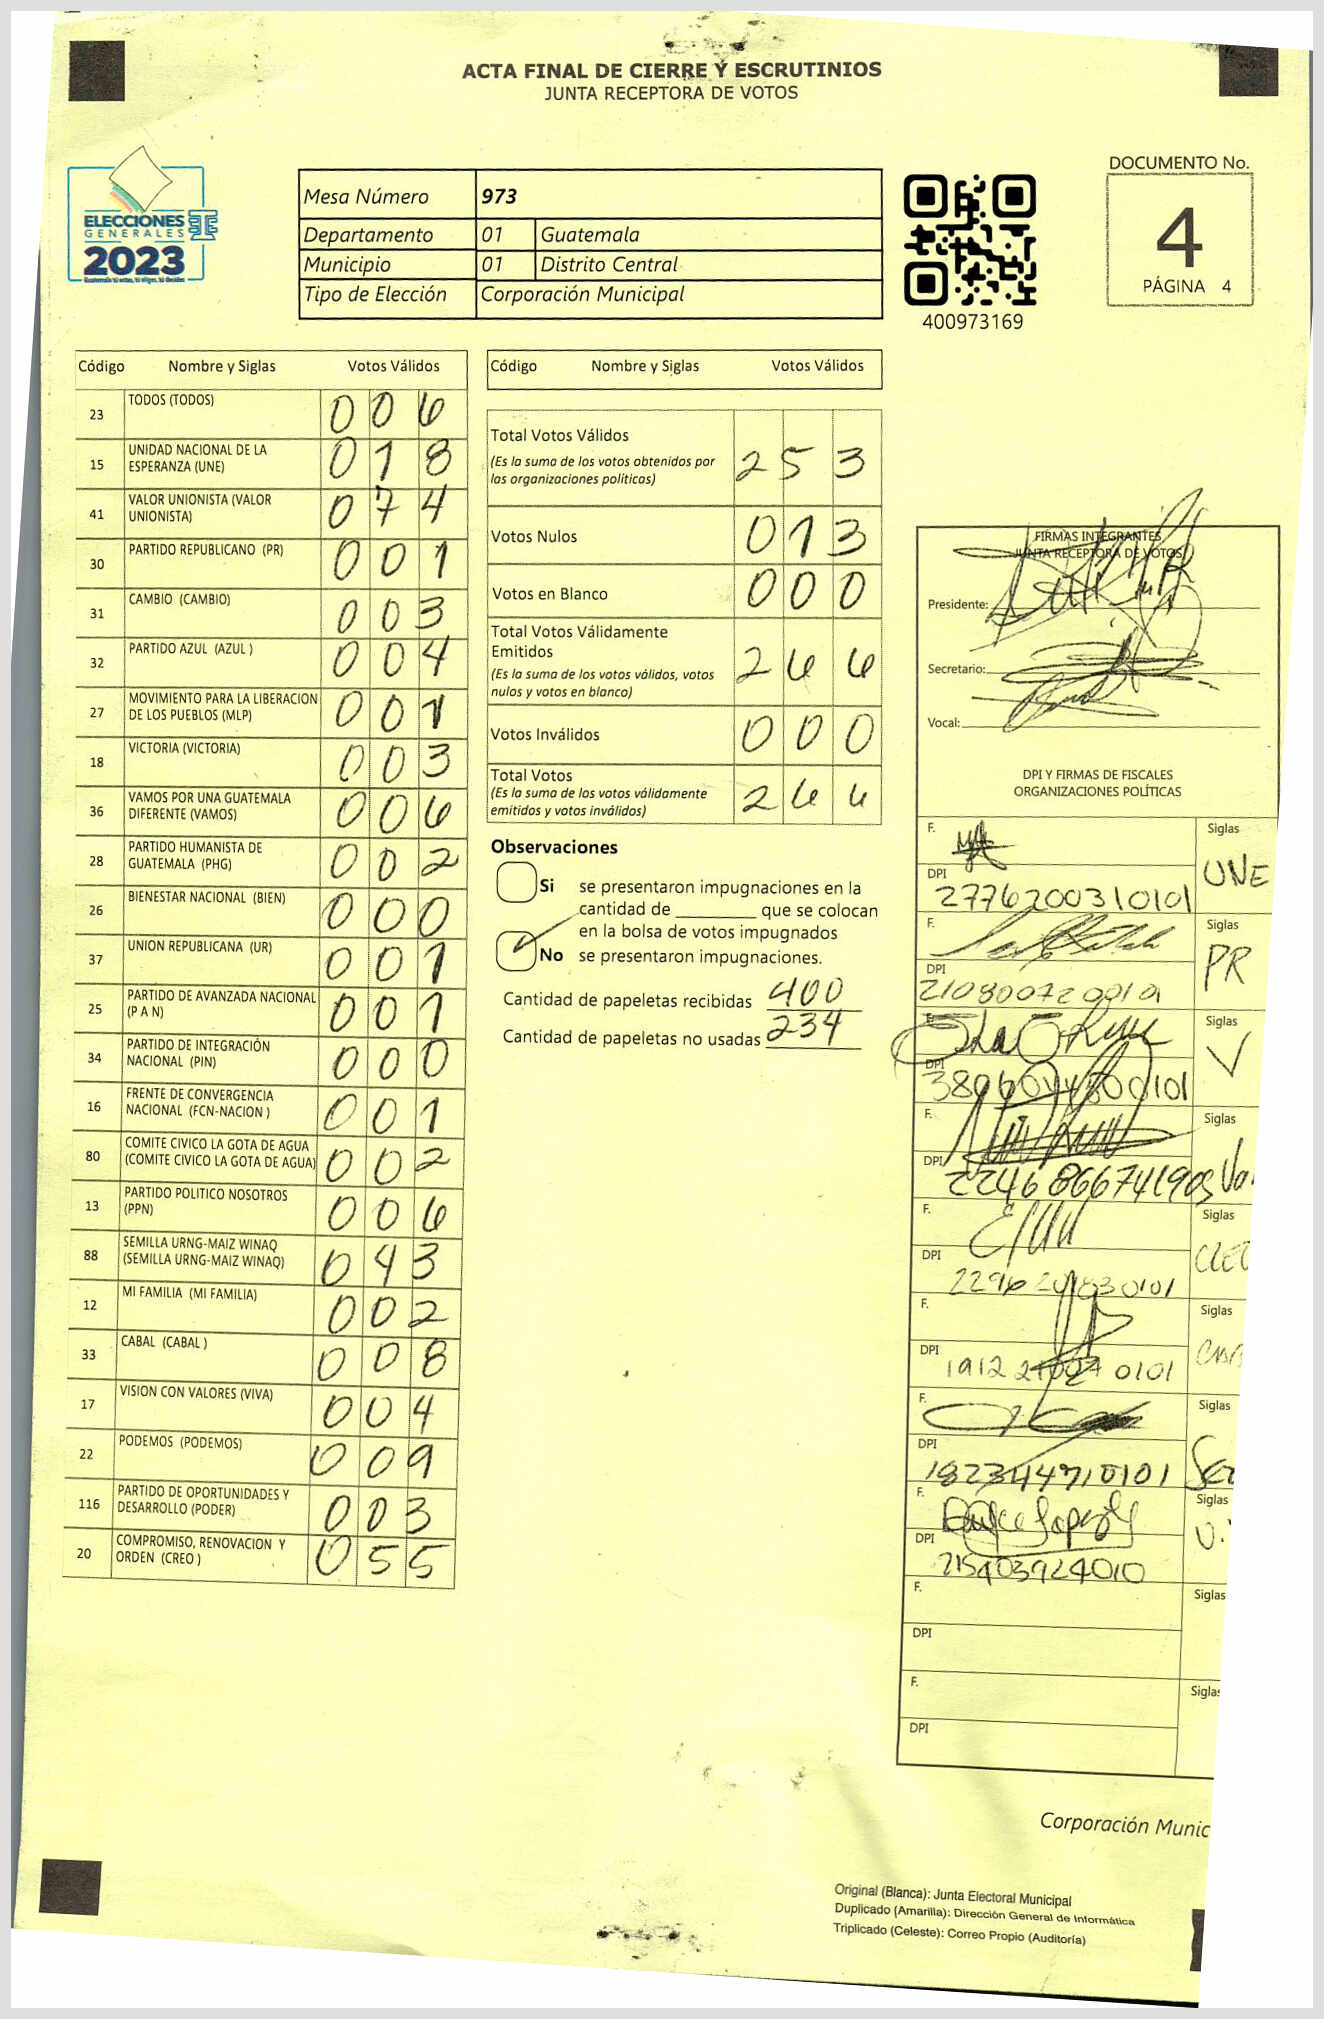 ACTA FINAL DE CIERRE Y ESCRUTINIOS
JUNTA RECEPTORA DE VOTOS
ELECCIONES
GENERALES
2023
Mesa Número 973
Departamento 01 Guatemala
Municipio 01 Distrito Central
Tipo de Elección Corporación Municipal
400973169
DOCUMENTO No.
4
PÁGINA 4
Código Nombre y Siglas Votos Válidos
23 TODOS (TODOS) 006
15 UNIDAD NACIONAL DE LA
ESPERANZA (UNE) 018
41 VALOR UNIONISTA (VALOR
UNIONISTA) 074
30 PARTIDO REPUBLICANO (PR) 001
31 CAMBIO (CAMBIO) 003
32 PARTIDO AZUL (AZUL ) 004
27 MOVIMIENTO PARA LA LIBERACION
DE LOS PUEBLOS (MLP) 001
18 VICTORIA (VICTORIA) 003
36 VAMOS POR UNA GUATEMALA
DIFERENTE (VAMOS) 006
28 PARTIDO HUMANISTA DE
GUATEMALA (PHG) 002
26 BIENESTAR NACIONAL (BIEN) 000
37 UNION REPUBLICANA (UR) 001
25 PARTIDO DE AVANZADA NACIONAL
(P A N) 001
34 PARTIDO DE INTEGRACIÓN
NACIONAL (PIN) 000
16 FRENTE DE CONVERGENCIA
NACIONAL (FCN-NACION ) 001
80 COMITE CIVICO LA GOTA DE AGUA
(COMITE CIVICO LA GOTA DE AGUA) 002
13 PARTIDO POLITICO NOSOTROS
(PPN) 006
88 SEMILLA URNG-MAIZ WINAQ
(SEMILLA URNG-MAIZ WINAQ) 043
12 MI FAMILIA (MI FAMILIA) 002
33 CABAL (CABAL ) 008
17 VISION CON VALORES (VIVA) 004
22 PODEMOS (PODEMOS) 009
116 PARTIDO DE OPORTUNIDADES Y
DESARROLLO (PODER) 003
20 COMPROMISO, RENOVACION Y
ORDEN (CREO ) 055
Código Nombre y Siglas Votos Válidos
Total Votos Válidos 253
(Es la suma de los votos obtenidos por
las organizaciones políticas)
Votos Nulos 013
Votos en Blanco 000
Total Votos Válidamente
Emitidos 266
(Es la suma de los votos válidos, votos
nulos y votos en blanco)
Votos Inválidos 000
Total Votos 266
(Es la suma de los votos válidamente
emitidos y votos inválidos)
Observaciones
Si se presentaron impugnaciones en la
cantidad de ________ que se colocan
en la bolsa de votos impugnados
No se presentaron impugnaciones.
Cantidad de papeletas recibidas 400
Cantidad de papeletas no usadas 234
FIRMAS INTEGRANTES
JUNTA RECEPTORA DE VOTOS
Presidente:
Secretario:
Vocal:
DPI Y FIRMAS DE FISCALES
ORGANIZACIONES POLÍTICAS
F. Siglas
UNE
DPI
2776200310101
F. Siglas
PR
DPI
F. Siglas
V
DPI
F. Siglas
DPI
F. Siglas
DPI
F. Siglas
DPI
F. Siglas
DPI
F. Siglas
DPI
F. Siglas
DPI
F. Siglas
DPI
Corporación Munic
Original (Blanca): Junta Electoral Municipal
Duplicado (Amarilla): Dirección General de Informática
Triplicado (Celeste): Correo Propio (Auditoría)